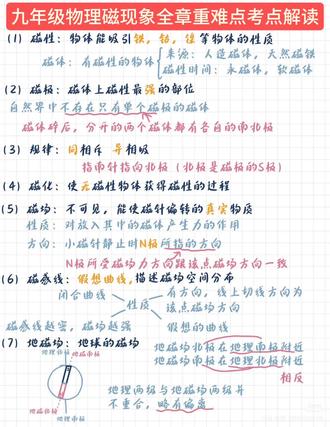 九年级物理磁现象全章重难点考点解读
(1) 磁性：物体能够吸引铁，钴，镍等物体的性质
磁体：有磁性的物体
来源：人造磁体，天然磁铁
磁性时间：永磁体，软磁体
(2) 磁极：磁体上磁性最强的部位
自然界中不存在只有单个磁极的磁体
磁体碎后，分开的两个磁体都有各自的南北极
(3) 规律：同相斥 异相吸
指南针指向北极（北极是磁极的S极）
(4) 磁化：使无磁性物体获得磁性的过程
(5) 磁场：不可见，能使磁针偏转的真实物质
性质：对放入其中的磁体产生力的作用
方向：小磁针静止时N极所指的方向
N极所受磁场力方向跟该点磁场方向一致
(6) 磁感线：假想曲线，描述磁场空间分布
闭合曲线
性质
有方向，线上切线方向为
该点磁场方向
磁感线越密，磁场越强
假想的曲线
(7) 地磁场：地球的磁场
地理北极
地磁南极
地磁北极
地理南极
地磁场北极在地理南极附近
地磁场南极在地理北极附近
相反
地理两极与地磁场两极并
不重合，略有偏离